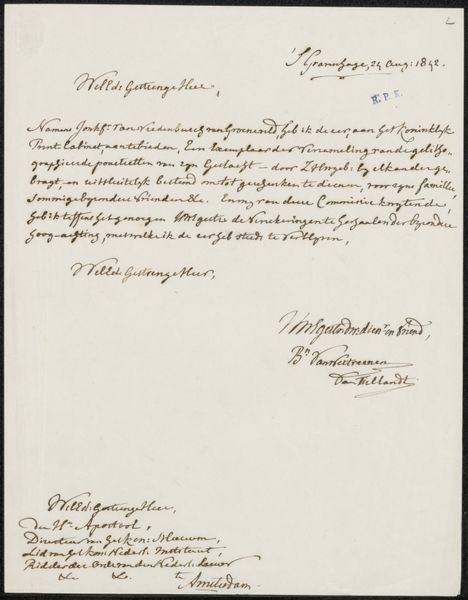 'S Gravenhage, 24 Aug: 1842.
R. P. K.
WelEd: Gestrenge Heer,
Namens Jonkhr. van heb ik de eer, aan het Koninklijk
Prent Cabinet aantebieden, Een Exemplaar der Verzameling van de gelitho-
grapheerde portretten van zyn Geslacht — door ZHWgeb: by elkander ge-
bragt, en uitsluitelijk bestemd om tot geschenken te dienen, voor zyne familie,
sommige byzondere Vrienden &c. En my van deze Commissie kwytende,
heb ik teffens het genoegen UwEgestr: de Verzekering te herhalen der byzondere
hoog-achting, met welke ik de eer heb steeds te verblyven,
WelEd: Gestrenge Heer,
UwEgestr: dr. dienr. en Vriend,
Bn. Van Westreenen
Van Tiellandt
WelEd: Gestrenge Heer,
den Hr. Apostool,
Directeur van het Kon: Museum,
Lid van het Kon: Nederl. Instituut,
Ridder der Orde van den Nederl: Leeuw
&c. &c. te
Amsterdam.